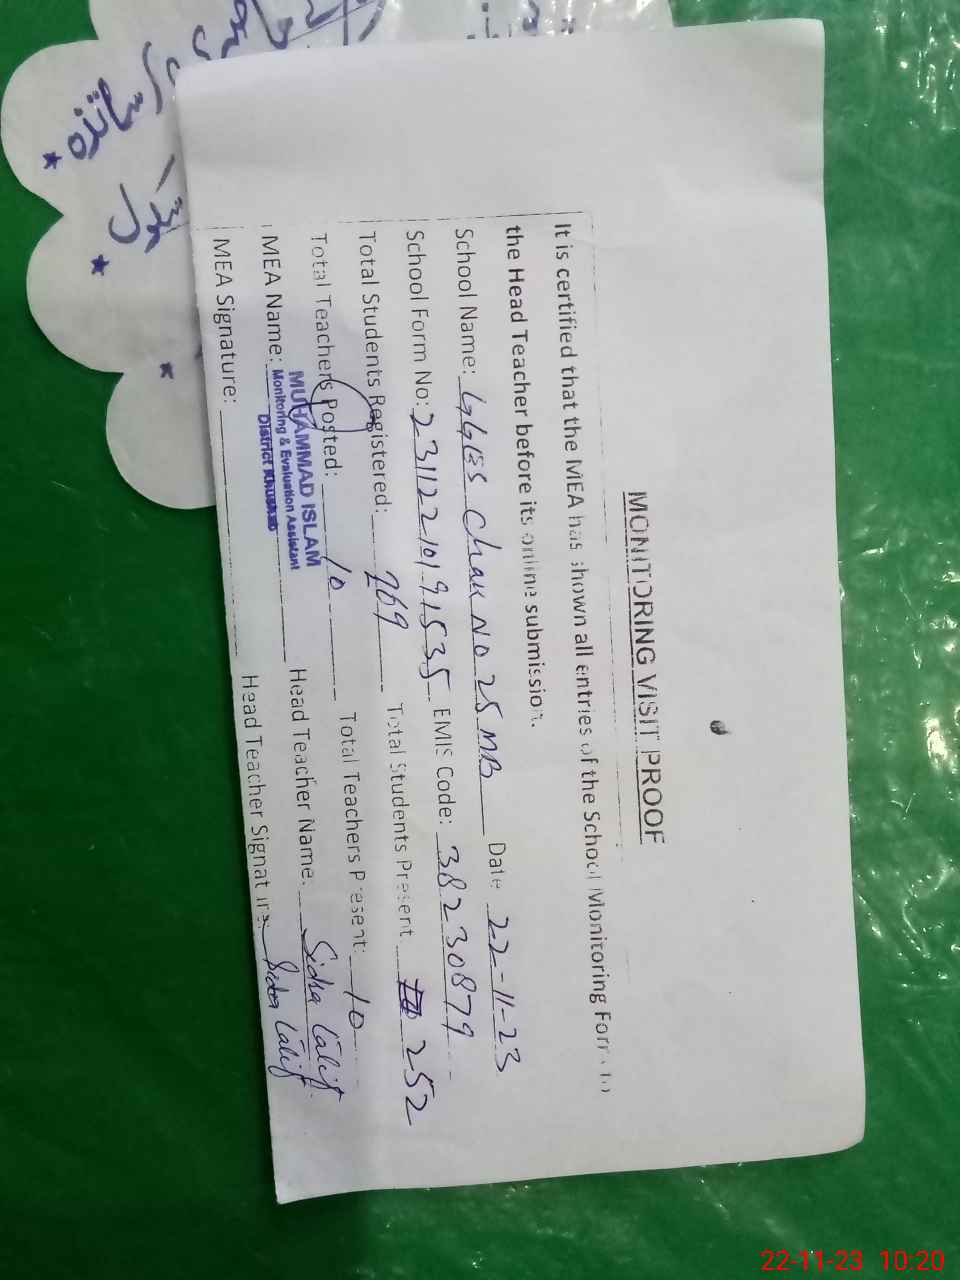 MONITORING VISIT PROOF
It is certified that the MEA has shown all entries of the School Monitoring Form to
the Head Teacher before its online submission.
School Name: GGES Chak No 25 MB Date 22-11-23
School Form No: 23112210191535 EMIS Code: 38230879
Total Students Registered: 269 Total Students Present 252
Total Teachers Posted: 10 Total Teachers Present: 10
MEA Name: MUHAMMAD ISLAM Head Teacher Name: Sidra Latif
Monitoring & Evaluation Assistant
District Khushab
MEA Signature: Head Teacher Signature: Sidra Latif
22-11-23 10:20